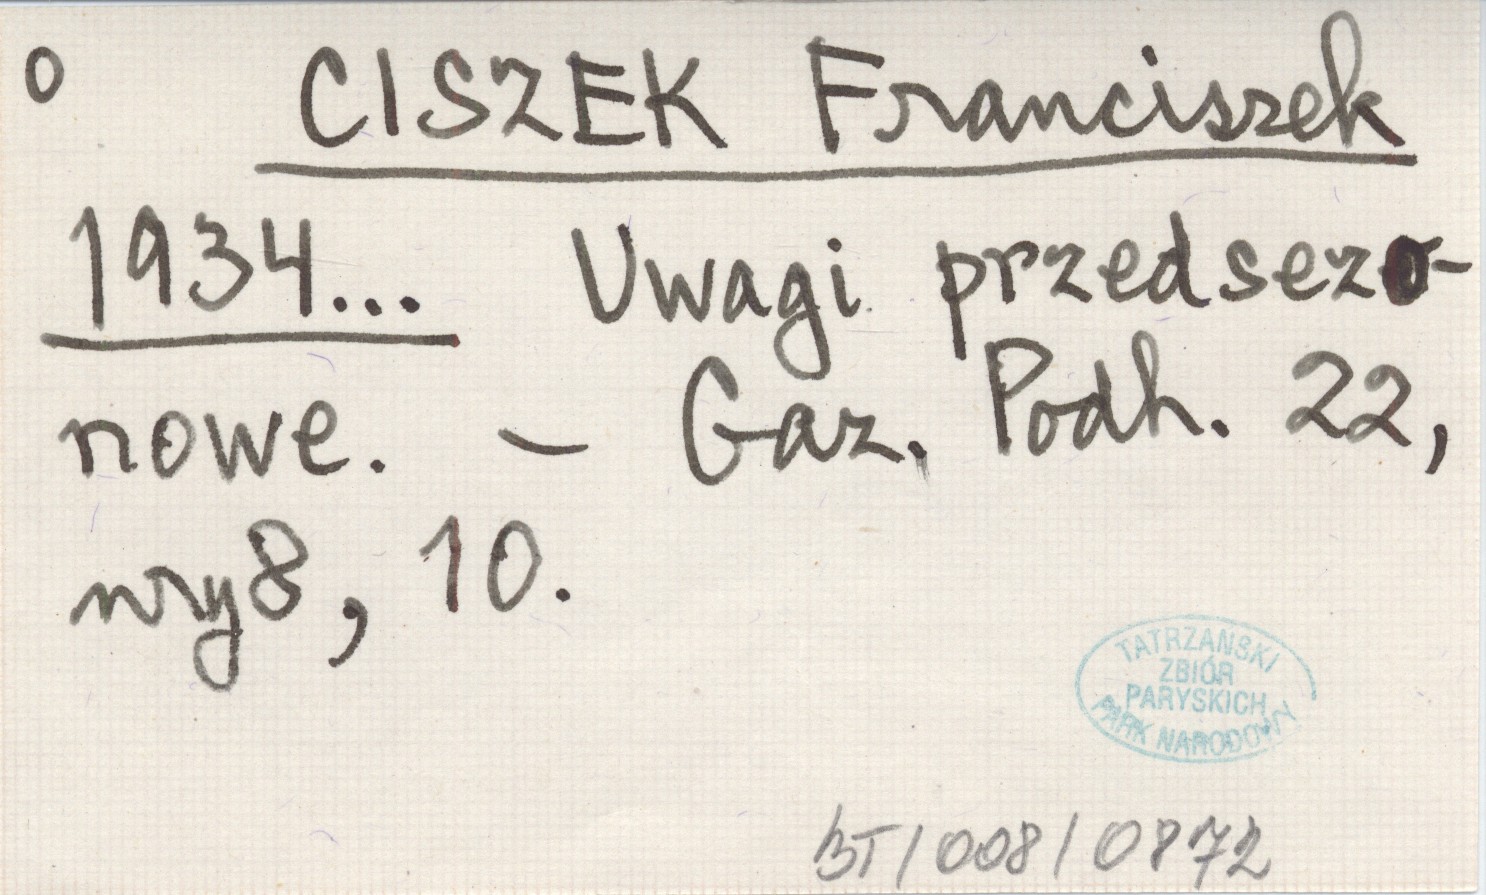 o CISZEK Franciszek
1934... Uwagi przedsezo-
nowe. – Gaz. Podh. 22,
nry 8, 10.
TATRZAŃSKI
ZBIÓR
PARYSKICH
PARK NARODOWY
BT/008/0872